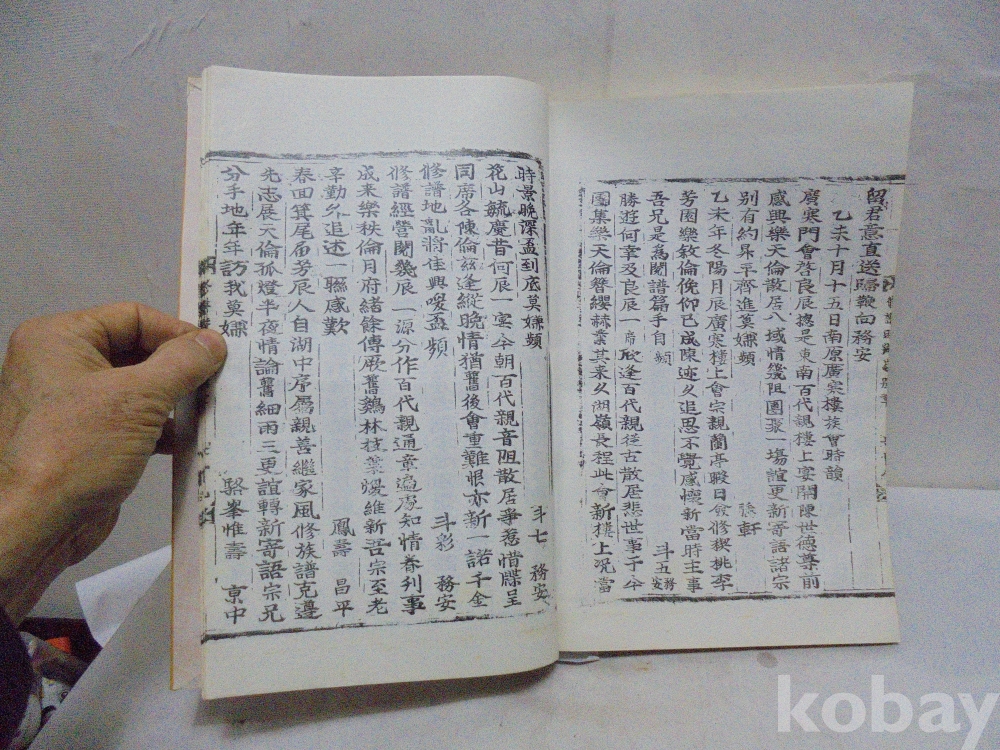 留君意直送歸鞭向務安
乙未十月十五日南原廣寒樓族會時韻
廣寒門會啓良辰摠是東南百代親樓上宴開陳世德尊前
感興樂天倫散居八域情幾阻團聚一場誼更新寄語諸宗
別有約昇平齊進莫嫌頻 軒
乙未年冬陽月辰廣寒樓上會宗親蘭亭暇日會修禊桃李
芳園樂敘倫俛仰已成陳迹久追思不覺感懷新當時主事
吾兄是爲閱譜篇手自頻 斗五 務安
勝遊何幸及良辰一席欣逢百代親從古散居悲世事于今
團集樂天倫簪纓赫業其來久湖嶺長程此會新樓上況當
時景晩深盃到底莫嫌頻 斗七 務安
花山毓慶昔何辰一宴今朝百代親音阻散居爭惹惜牒呈
同席各陳倫玆逢縱晩情猶舊後會重難恨亦新一諾千金
修譜地亂將佳興喚盃頻 斗彩 務安
修譜經營閱幾辰一源分作百代親通章遍處知情眷列事
成來樂秩倫月府緖餘傳厥舊鷄林枝葉煥維新苦宗至老
辛勤外追述一聯感歎 鳳壽 昌平
春面箕尾屆芳辰人自湖中序屬親善繼家風修族譜克遵
先志展天倫孤燈半夜情論舊細雨三更誼轉新寄語宗兄
分手地年年訪我莫嫌 駱峯惟壽 京中
kobay